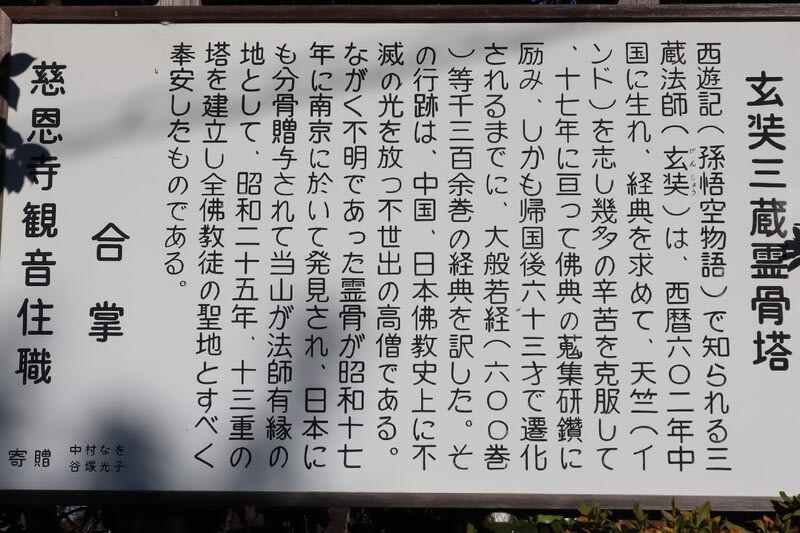 玄奘三蔵霊骨塔
西遊記(孫悟空物語)で知られる三
蔵法師(玄奘)は、西暦六〇二年中
げんじょう
国に生れ、経典を求めて、天竺(イ
ンド)を志し幾多の辛苦を克服して
、十七年に亘って佛典の蒐集研鑽に
励み、しかも帰国後六十三才で遷化
されるまでに、大般若経(六〇〇巻
)等千三百余巻の経典を訳した。そ
の行跡は、中国、日本佛教史上に不
滅の光を放つ不世出の高僧である。
ながく不明であった霊骨が昭和十七
年に南京に於いて発見され、日本に
も分骨贈与されて当山が法師有縁の
地として、昭和二十五年、十三重の
塔を建立し全佛教徒の聖地とすべく
奉安したものである。
合掌
慈恩寺観音住職
寄贈
中村なを
谷塚光子